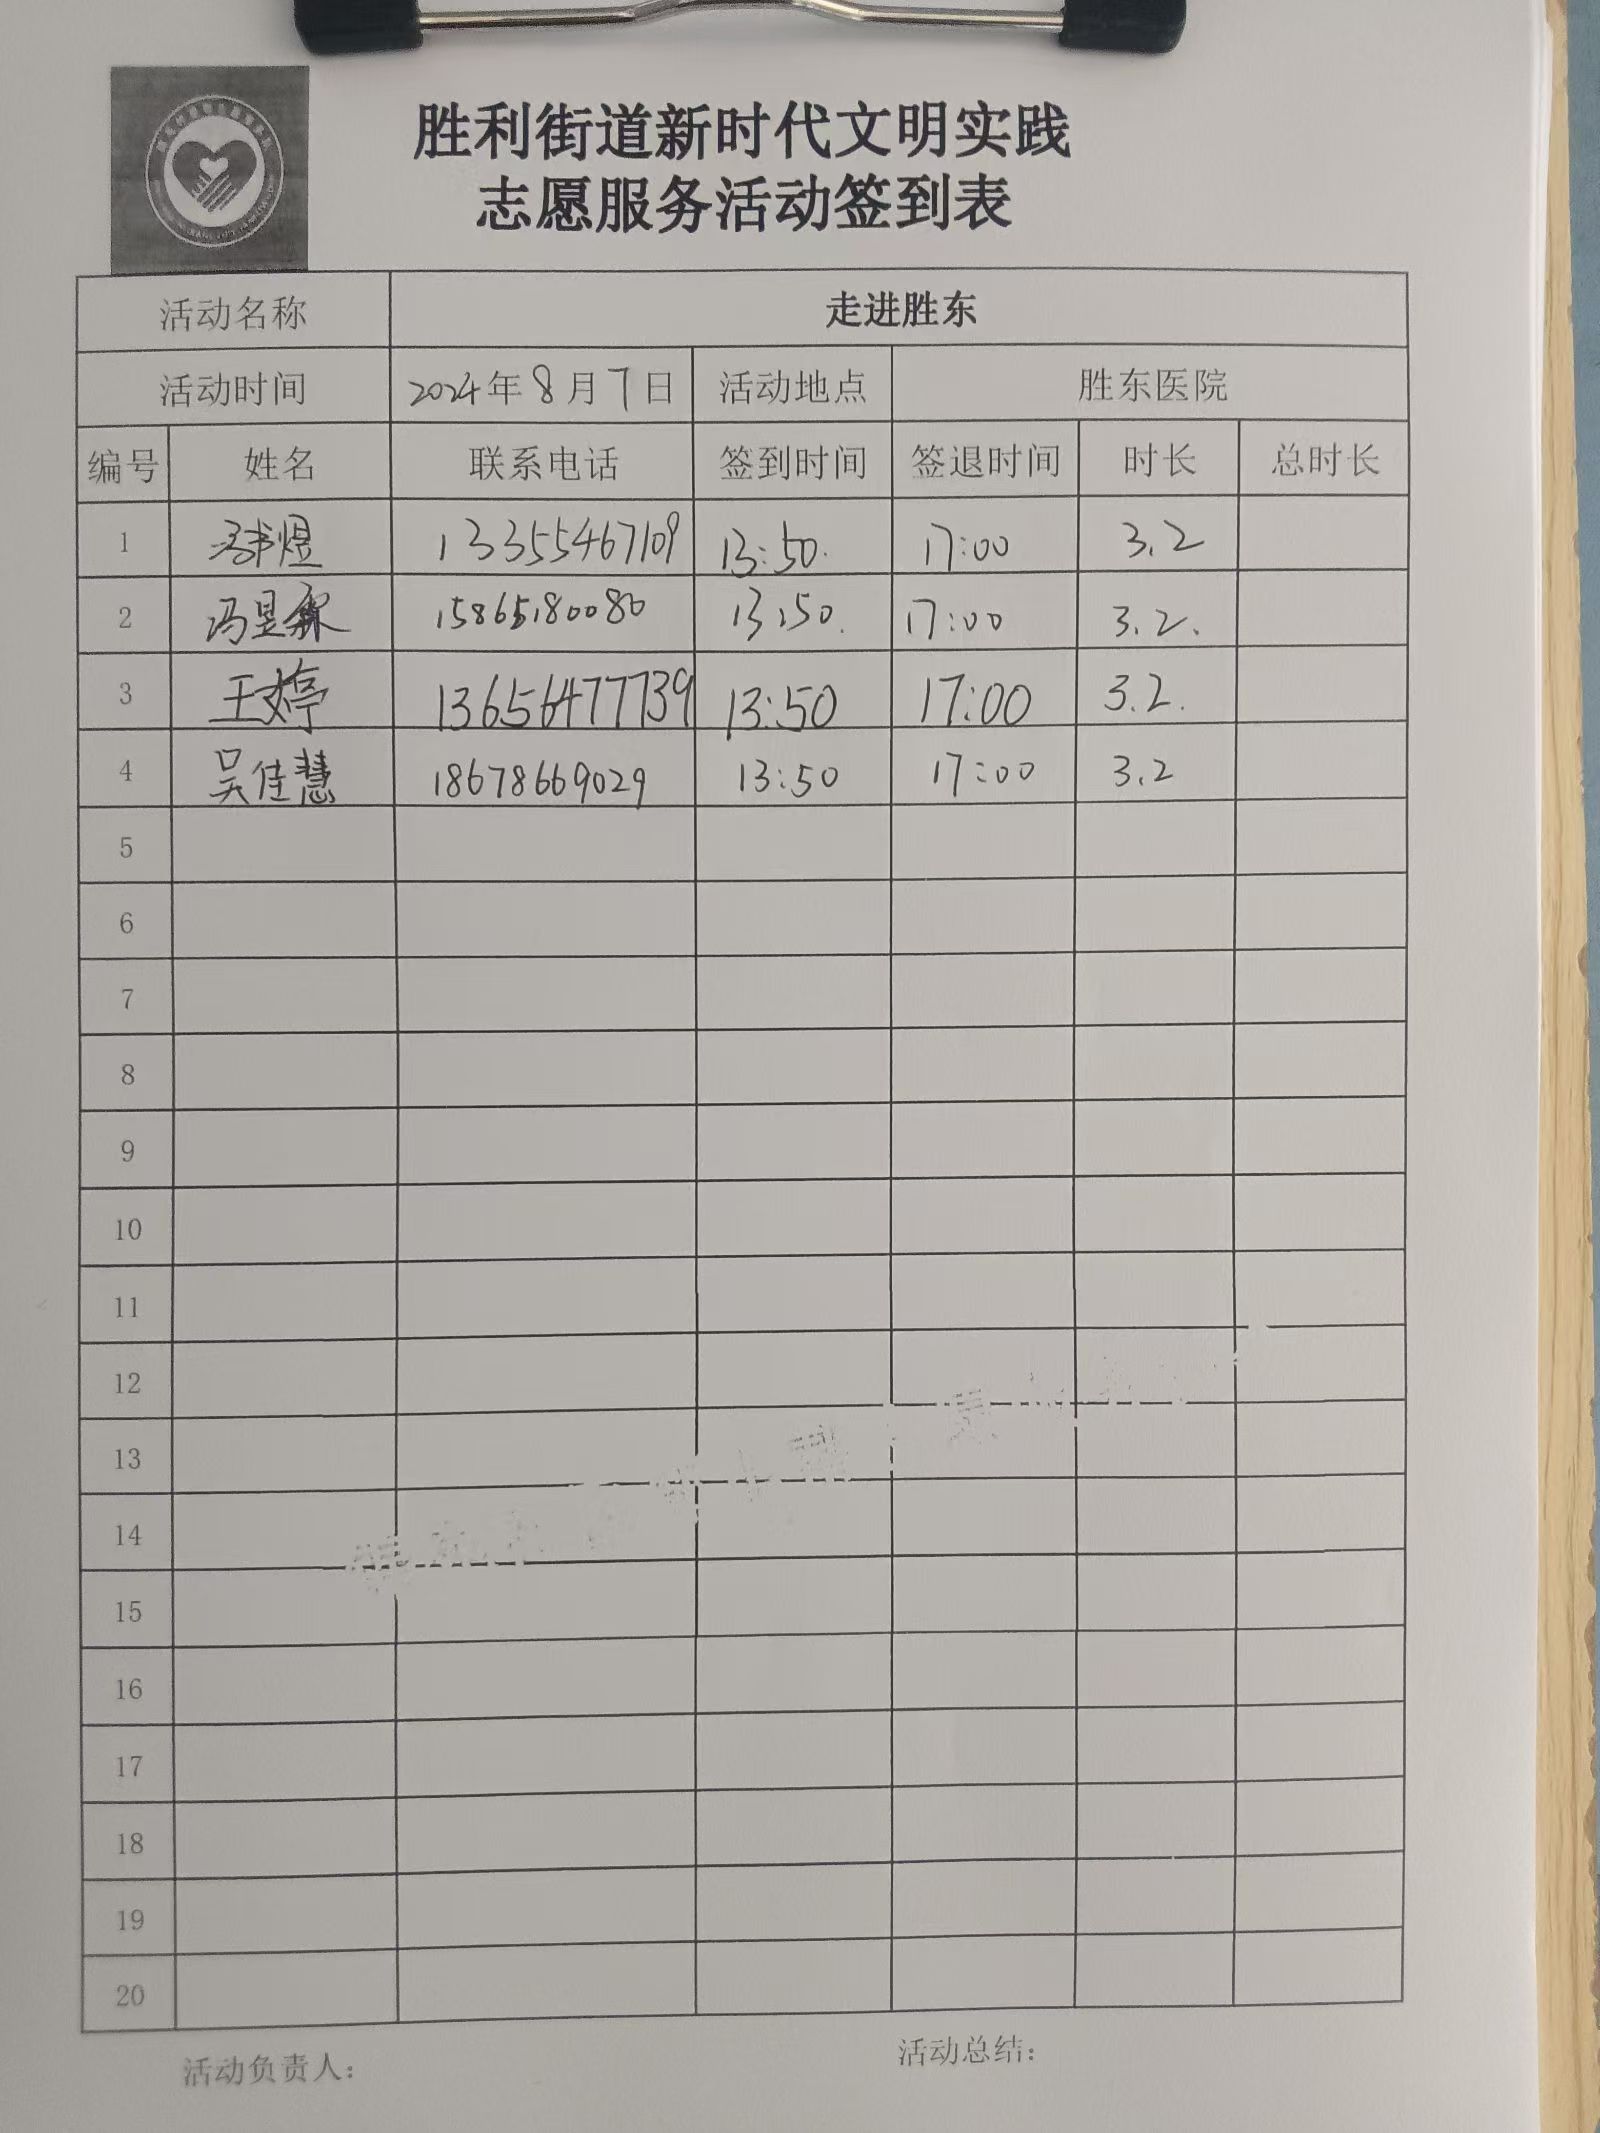 胜利街道新时代文明实践
志愿服务活动签到表
活动名称 走进胜东
活动时间 2024年8月7日 活动地点 胜东医院
编号 姓名 联系电话 签到时间 签退时间 时长 总时长
1 冯书煜 13355467109 13:50. 17:00 3.2
2 冯昱霖 15865180080 13:50. 17:00 3.2.
3 王婷 13656477739 13:50 17:00 3.2.
4 吴佳慧 18678669029 13:50 17:00 3.2
5
6
7
8
9
10
11
12
13
14
15
16
17
18
19
20
活动负责人: 活动总结: